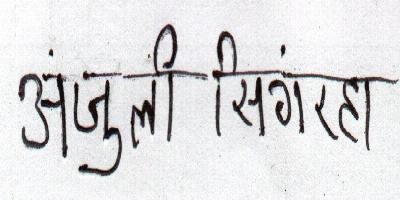 अंजुली सिंगरहा